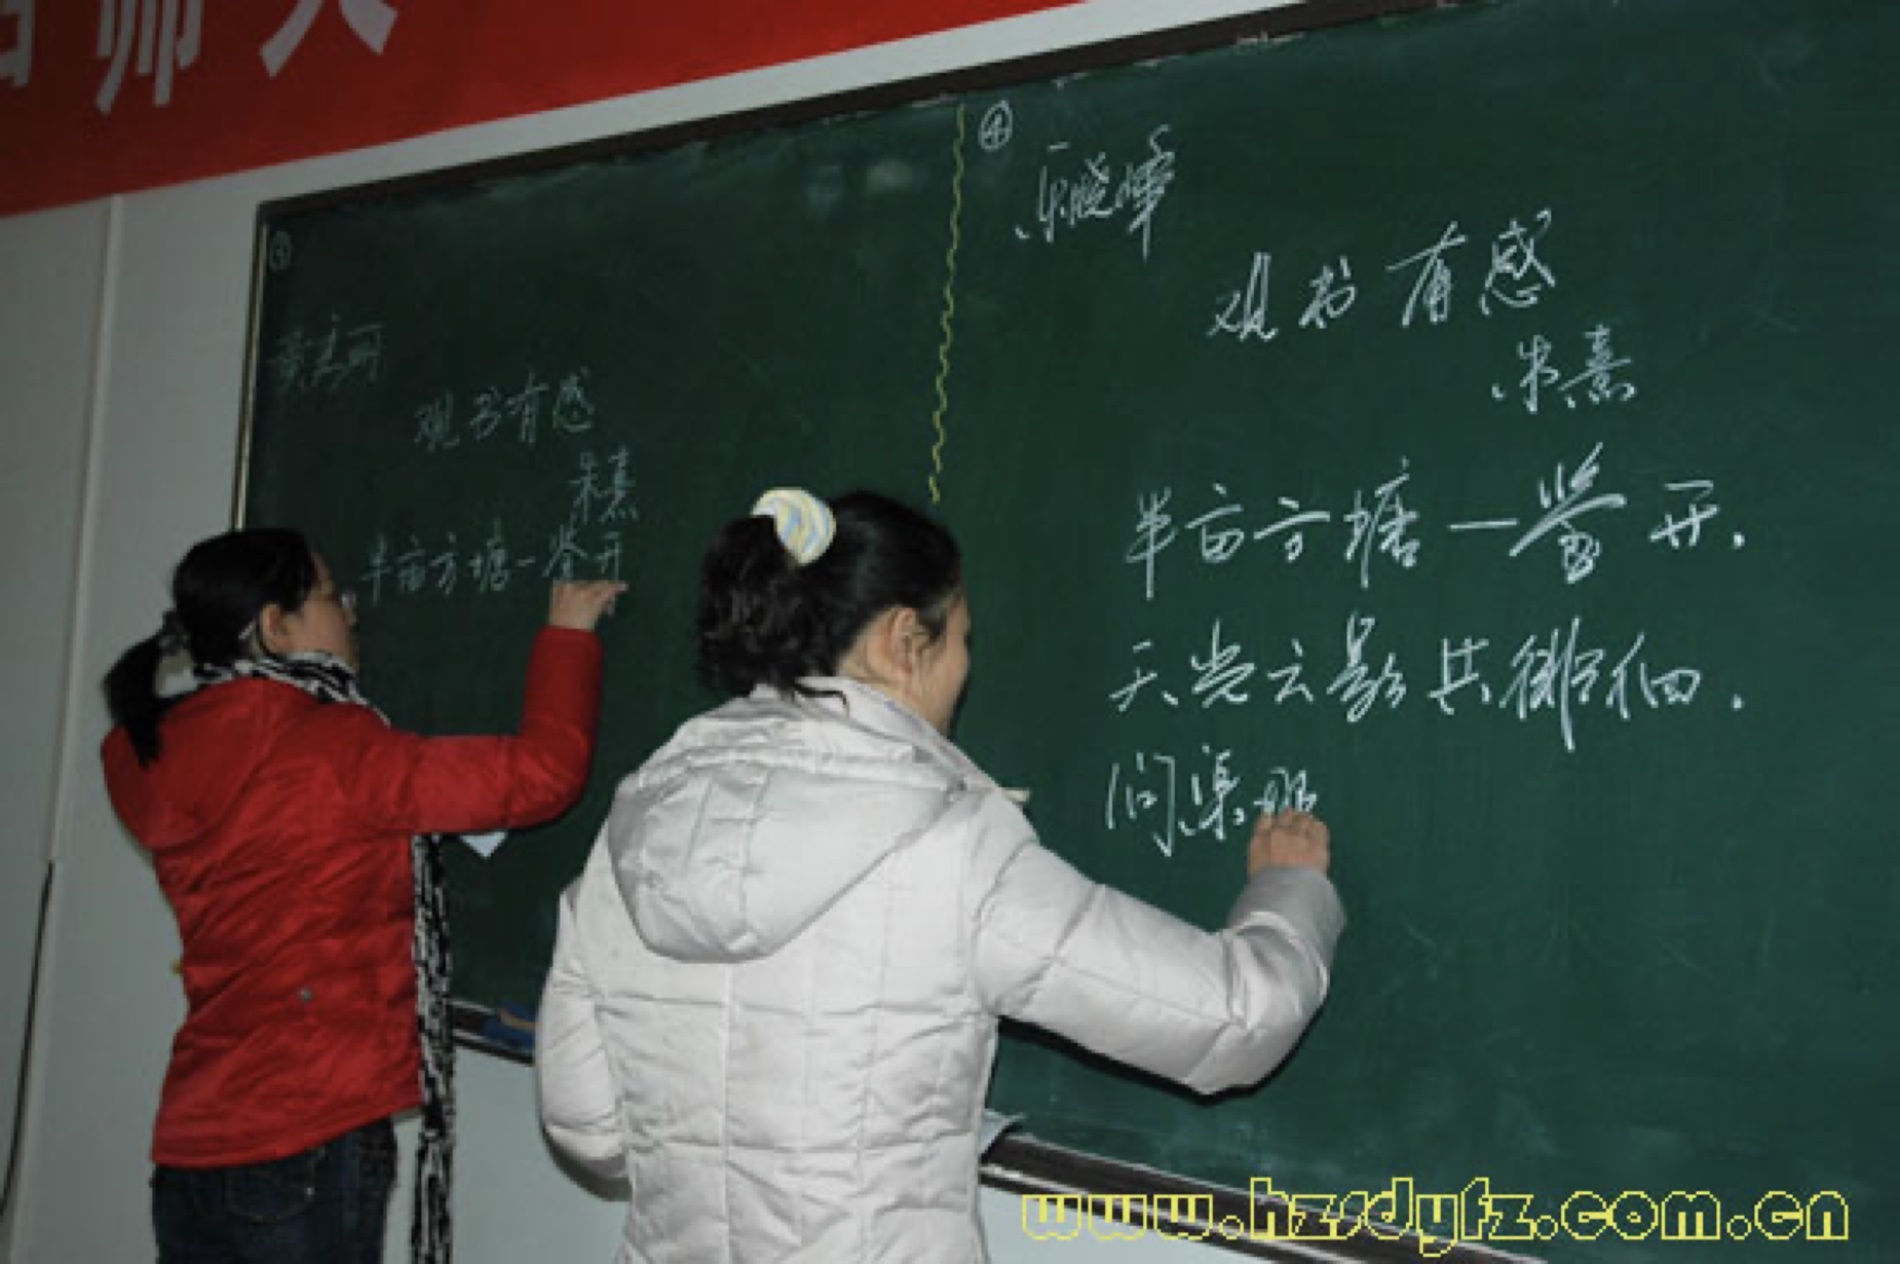 师大
③
观书有感
朱熹
半亩方塘一鉴开
④
乐晓峰
观书有感
朱熹
半亩方塘一鉴开.
天光云影共徘徊.
问渠那
www.hzsdyfz.com.cn